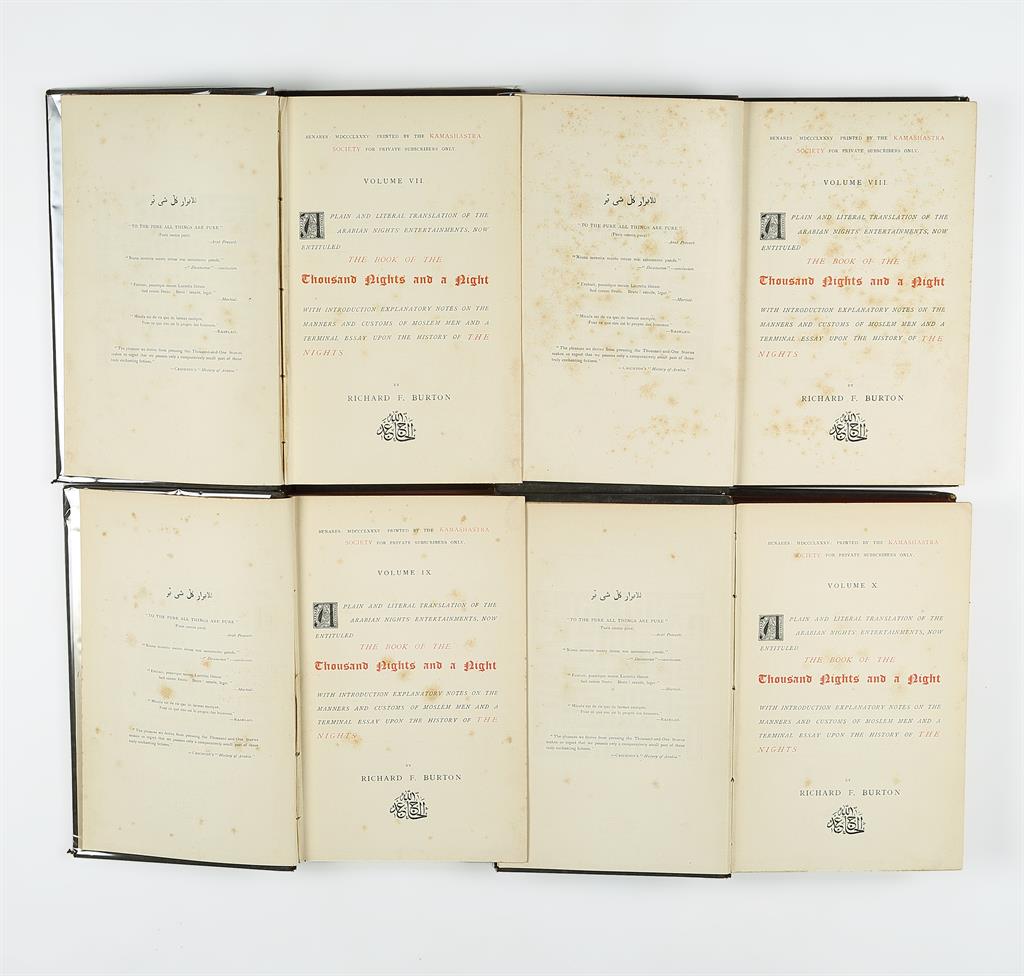 للابرار كل شي تر
"TO THE PURE ALL THINGS ARE PURE"
(Puris omnia pura)
—Arab Proverb.
"Niuna corrotta mente intese mai sanamente parole."
—"Decameron"—conclusion.
"Erubuit, posuitque meum Lucretia librum
Sed coram Bruto. Brute! recede, leget."
—Martial.
"Mieulx est de ris que de larmes escripre,
Pour ce que rire est le propre des hommes."
—RABELAIS.
"The pleasure we derive from perusing the Thousand-and-One Stories
makes us regret that we possess only a comparatively small part of these
truly enchanting fictions."
—CRICHTON'S "History of Arabia."
BENARES: MDCCCLXXXV: PRINTED BY THE KAMASHASTRA
SOCIETY FOR PRIVATE SUBSCRIBERS ONLY.
VOLUME VII.
A PLAIN AND LITERAL TRANSLATION OF THE
ARABIAN NIGHTS' ENTERTAINMENTS, NOW
ENTITULED
THE BOOK OF THE
Thousand Nights and a Night
WITH INTRODUCTION EXPLANATORY NOTES ON THE
MANNERS AND CUSTOMS OF MOSLEM MEN AND A
TERMINAL ESSAY UPON THE HISTORY OF THE
NIGHTS
BY
RICHARD F. BURTON
للابرار كل شي تر
"TO THE PURE ALL THINGS ARE PURE"
(Puris omnia pura)
—Arab Proverb.
"Niuna corrotta mente intese mai sanamente parole."
—"Decameron"—conclusion.
"Erubuit, posuitque meum Lucretia librum
Sed coram Bruto. Brute! recede, leget."
—Martial.
"Mieulx est de ris que de larmes escripre,
Pour ce que rire est le propre des hommes."
—RABELAIS.
"The pleasure we derive from perusing the Thousand-and-One Stories
makes us regret that we possess only a comparatively small part of these
truly enchanting fictions."
—CRICHTON'S "History of Arabia."
BENARES: MDCCCLXXXV: PRINTED BY THE KAMASHASTRA
SOCIETY FOR PRIVATE SUBSCRIBERS ONLY.
VOLUME VIII.
A PLAIN AND LITERAL TRANSLATION OF THE
ARABIAN NIGHTS' ENTERTAINMENTS, NOW
ENTITULED
THE BOOK OF THE
Thousand Nights and a Night
WITH INTRODUCTION EXPLANATORY NOTES ON THE
MANNERS AND CUSTOMS OF MOSLEM MEN AND A
TERMINAL ESSAY UPON THE HISTORY OF THE
NIGHTS
BY
RICHARD F. BURTON
للابرار كل شي تر
"TO THE PURE ALL THINGS ARE PURE"
(Puris omnia pura)
—Arab Proverb.
"Niuna corrotta mente intese mai sanamente parole."
—"Decameron"—conclusion.
"Erubuit, posuitque meum Lucretia librum
Sed coram Bruto. Brute! recede, leget."
—Martial.
"Mieulx est de ris que de larmes escripre,
Pour ce que rire est le propre des hommes."
—RABELAIS.
"The pleasure we derive from perusing the Thousand-and-One Stories
makes us regret that we possess only a comparatively small part of these
truly enchanting fictions."
—CRICHTON'S "History of Arabia."
BENARES: MDCCCLXXXV: PRINTED BY THE KAMASHASTRA
SOCIETY FOR PRIVATE SUBSCRIBERS ONLY.
VOLUME IX.
A PLAIN AND LITERAL TRANSLATION OF THE
ARABIAN NIGHTS' ENTERTAINMENTS, NOW
ENTITULED
THE BOOK OF THE
Thousand Nights and a Night
WITH INTRODUCTION EXPLANATORY NOTES ON THE
MANNERS AND CUSTOMS OF MOSLEM MEN AND A
TERMINAL ESSAY UPON THE HISTORY OF THE
NIGHTS
BY
RICHARD F. BURTON
للابرار كل شي تر
"TO THE PURE ALL THINGS ARE PURE"
(Puris omnia pura)
—Arab Proverb.
"Niuna corrotta mente intese mai sanamente parole."
—"Decameron"—conclusion.
"Erubuit, posuitque meum Lucretia librum
Sed coram Bruto. Brute! recede, leget."
—Martial.
"Mieulx est de ris que de larmes escripre,
Pour ce que rire est le propre des hommes."
—RABELAIS.
"The pleasure we derive from perusing the Thousand-and-One Stories
makes us regret that we possess only a comparatively small part of these
truly enchanting fictions."
—CRICHTON'S "History of Arabia."
BENARES: MDCCCLXXXV: PRINTED BY THE KAMASHASTRA
SOCIETY FOR PRIVATE SUBSCRIBERS ONLY.
VOLUME X.
A PLAIN AND LITERAL TRANSLATION OF THE
ARABIAN NIGHTS' ENTERTAINMENTS, NOW
ENTITULED
THE BOOK OF THE
Thousand Nights and a Night
WITH INTRODUCTION EXPLANATORY NOTES ON THE
MANNERS AND CUSTOMS OF MOSLEM MEN AND A
TERMINAL ESSAY UPON THE HISTORY OF THE
NIGHTS
BY
RICHARD F. BURTON